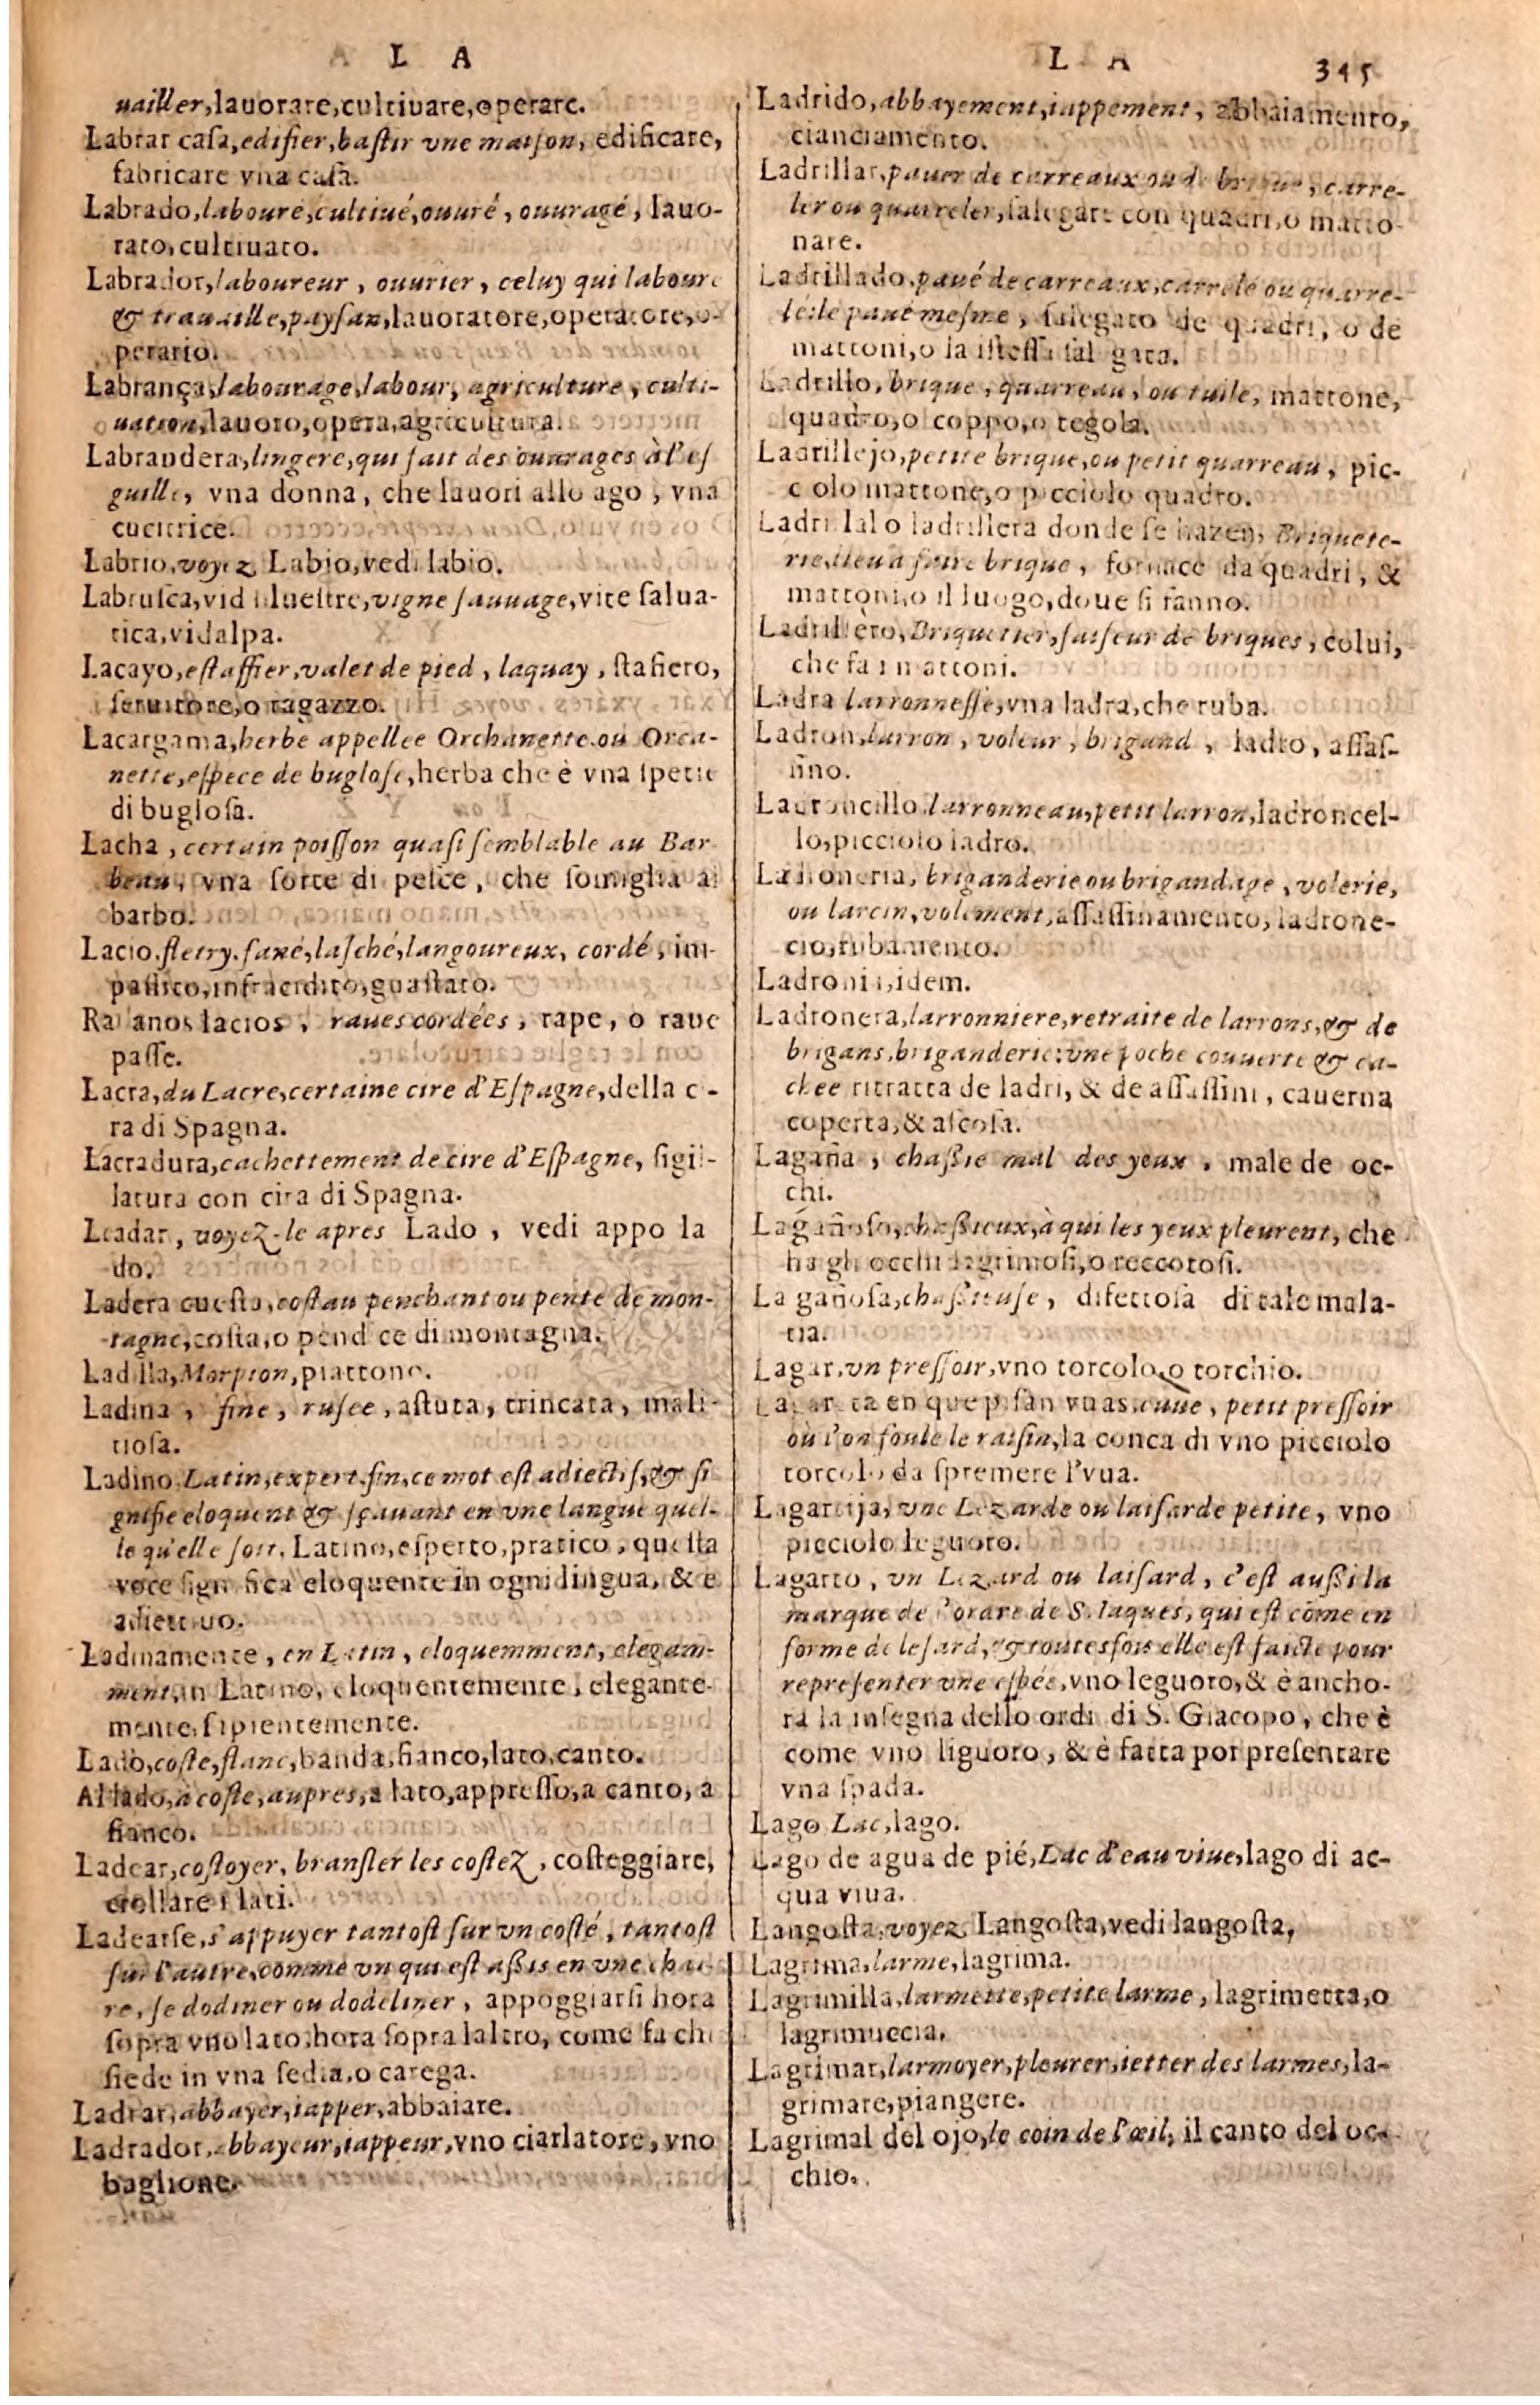 L A
L A 345
uailler, lauorare, cultiuare, operare.
Labrar casa, edifier, bastir vne maison, edificare,
fabricare vna casa.
Labrado, labouré, cultiué, ouuré, ouuragé, lauo-
rato, cultiuato.
Labrador, laboureur, ouurier, celuy qui laboure
& trauaille, paysan, lauoratore, operatore, o-
perario.
Labrança, labourage, labour, agriculture, culti-
uation, lauoro, opera, agricultura.
Labrandera, lingere, qui fait des ouurages à l'es
guille, vna donna, che lauori allo ago, vna
cucitrice.
Labrio, voyez Labio, vedi labio.
Labrusca, vid siluestre, vigne sauuage, vite salua-
tica, vidalpa.
Lacayo, estaffier, valet de pied, laquay, stafiero,
seruitore, o ragazzo.
Lacargama, herbe appellee Orchanette ou Orca-
nette, espece de buglose, herba che è vna spetie
di buglosa.
Lacha, certain poisson quasi semblable au Bar
beau, vna sorte di pesce, che somiglia al
barbo.
Lacio, fletry, fané, lasché, langoureux, cordé, im-
passito, infracidito, guastato.
Rauanos lacios, raues cordées, rape, o raue
passe.
Lacra, du Lacre, certaine cire d'Espagne, della ci-
ra di Spagna.
Lacradura, cachettement de cire d'Espagne, sigil-
latura con cira di Spagna.
Leadar, voyez-le apres Lado, vedi appo la
do.
Ladera cuesta, costau penchant ou pente de mon-
tagne, costa, o pendice di montagna.
Ladilla, Morpion, piattone.
Ladina, fine, rusee, astuta, trincata, mali-
tiosa.
Ladino, Latin, expert, fin, ce mot est adiectif, & si
gnifie eloquent & sçauant en vne langue quel-
le qu'elle soit, Latino, esperto, pratico, questa
voce significa eloquente in ogni lingua, & è
adiettiuo.
Ladinamente, en Latin, eloquemment, elegam-
ment, in Latino, eloquentemente, elegante-
mente, sapientemente.
Lado, coste, flanc, banda, fianco, lato, canto.
Al lado, à coste, aupres, a lato, appresso, a canto, a
fianco.
Ladear, costoyer, bransler les costez, costeggiare,
crollare i lati.
Ladearse, s'appuyer tantost sur vn costé, tantost
sur l'autre, comme vn qui est assis en vne chai-
re, se dodiner ou dodeliner, appoggiarsi hora
sopra vno lato, hora sopra laltro, come fa chi
siede in vna sedia, o carega.
Ladrar, abbayer, iapper, abbaiare.
Ladrador, abbayeur, iappeur, vno ciarlatore, vno
baglione.
Ladrido, abbayement, iappement, abbaiamento,
cianciamento.
Ladrillar, pauer de carreaux ou de brique, carre-
ler ou quarreler, salegare con quadri, o matto-
nare.
Ladrillado, paué de carreaux, carrelé ou quarre-
lé: le paué mesme, salegato de quadri, o de
mattoni, o la istessa salegata.
Ladrillo, brique, quarreau, ou tuile, mattone,
quadro, o coppo, o tegola.
Ladrillejo, petite brique, ou petit quarreau, pic-
ciolo mattone, o picciolo quadro.
Ladrillal o ladrillera donde se hazen, Briquete-
rie, lieu à faire brique, fornace da quadri, &
mattoni, o il luogo, doue si fanno.
Ladrillero, Briquetier, faiseur de briques, colui,
che fa i mattoni.
Ladra larronnesse, vna ladra, che ruba.
Ladron, larron, voleur, brigand, ladro, assas-
sino.
Ladroncillo, larronneau, petit larron, ladroncel-
lo, picciolo ladro.
Ladroneria, briganderie ou brigandage, volerie,
ou larcin, volement, assassinamento, ladrone-
cio, rubamento.
Ladronia, idem.
Ladronera, larronniere, retraite de larrons, & de
brigans, briganderie: vne poche couuerte & ca-
chee ritratta de ladri, & de assassini, cauerna
coperta, & ascosa.
Lagaña, chassie mal des yeux, male de oc-
chi.
Lagañoso, chassieux, à qui les yeux pleurent, che
ha gli occhi lagrimosi, o reccotosi.
La gañosa, chassieuse, difettosa di tale mala-
tia.
Lagar, vn pressoir, vno torcolo, o torchio.
Lagareta en que pisan vuas, cuue, petit pressoir
où l'on foule le raisin, la conca di vno picciolo
torcolo da spremere l'vua.
Lagartija, vne Lezarde ou laisarde petite, vno
picciolo leguoro.
Lagarto, vn Lezard ou laisard, c'est aussi la
marque de l'ordre de S. Iaques, qui est côme en
forme de lesard, & toutesfois elle est faicte pour
representer vne espée, vno leguoro, & è ancho-
ra la insegna dello ordi di S. Giacopo, che è
come vno liguoro, & è fatta por presentare
vna spada.
Lago Lac, lago.
Lago de agua de pié, Lac d'eau viue, lago di ac-
qua viua.
Langosta, voyez Langosta, vedi langosta,
Lagrima, larme, lagrima.
Lagrimilla, larmette, petite larme, lagrimetta, o
lagrimuccia.
Lagrimar, larmoyer, pleurer, ietter des larmes, la-
grimare, piangere.
Lagrimal del ojo, le coin de l'œil, il canto del oc-
chio.